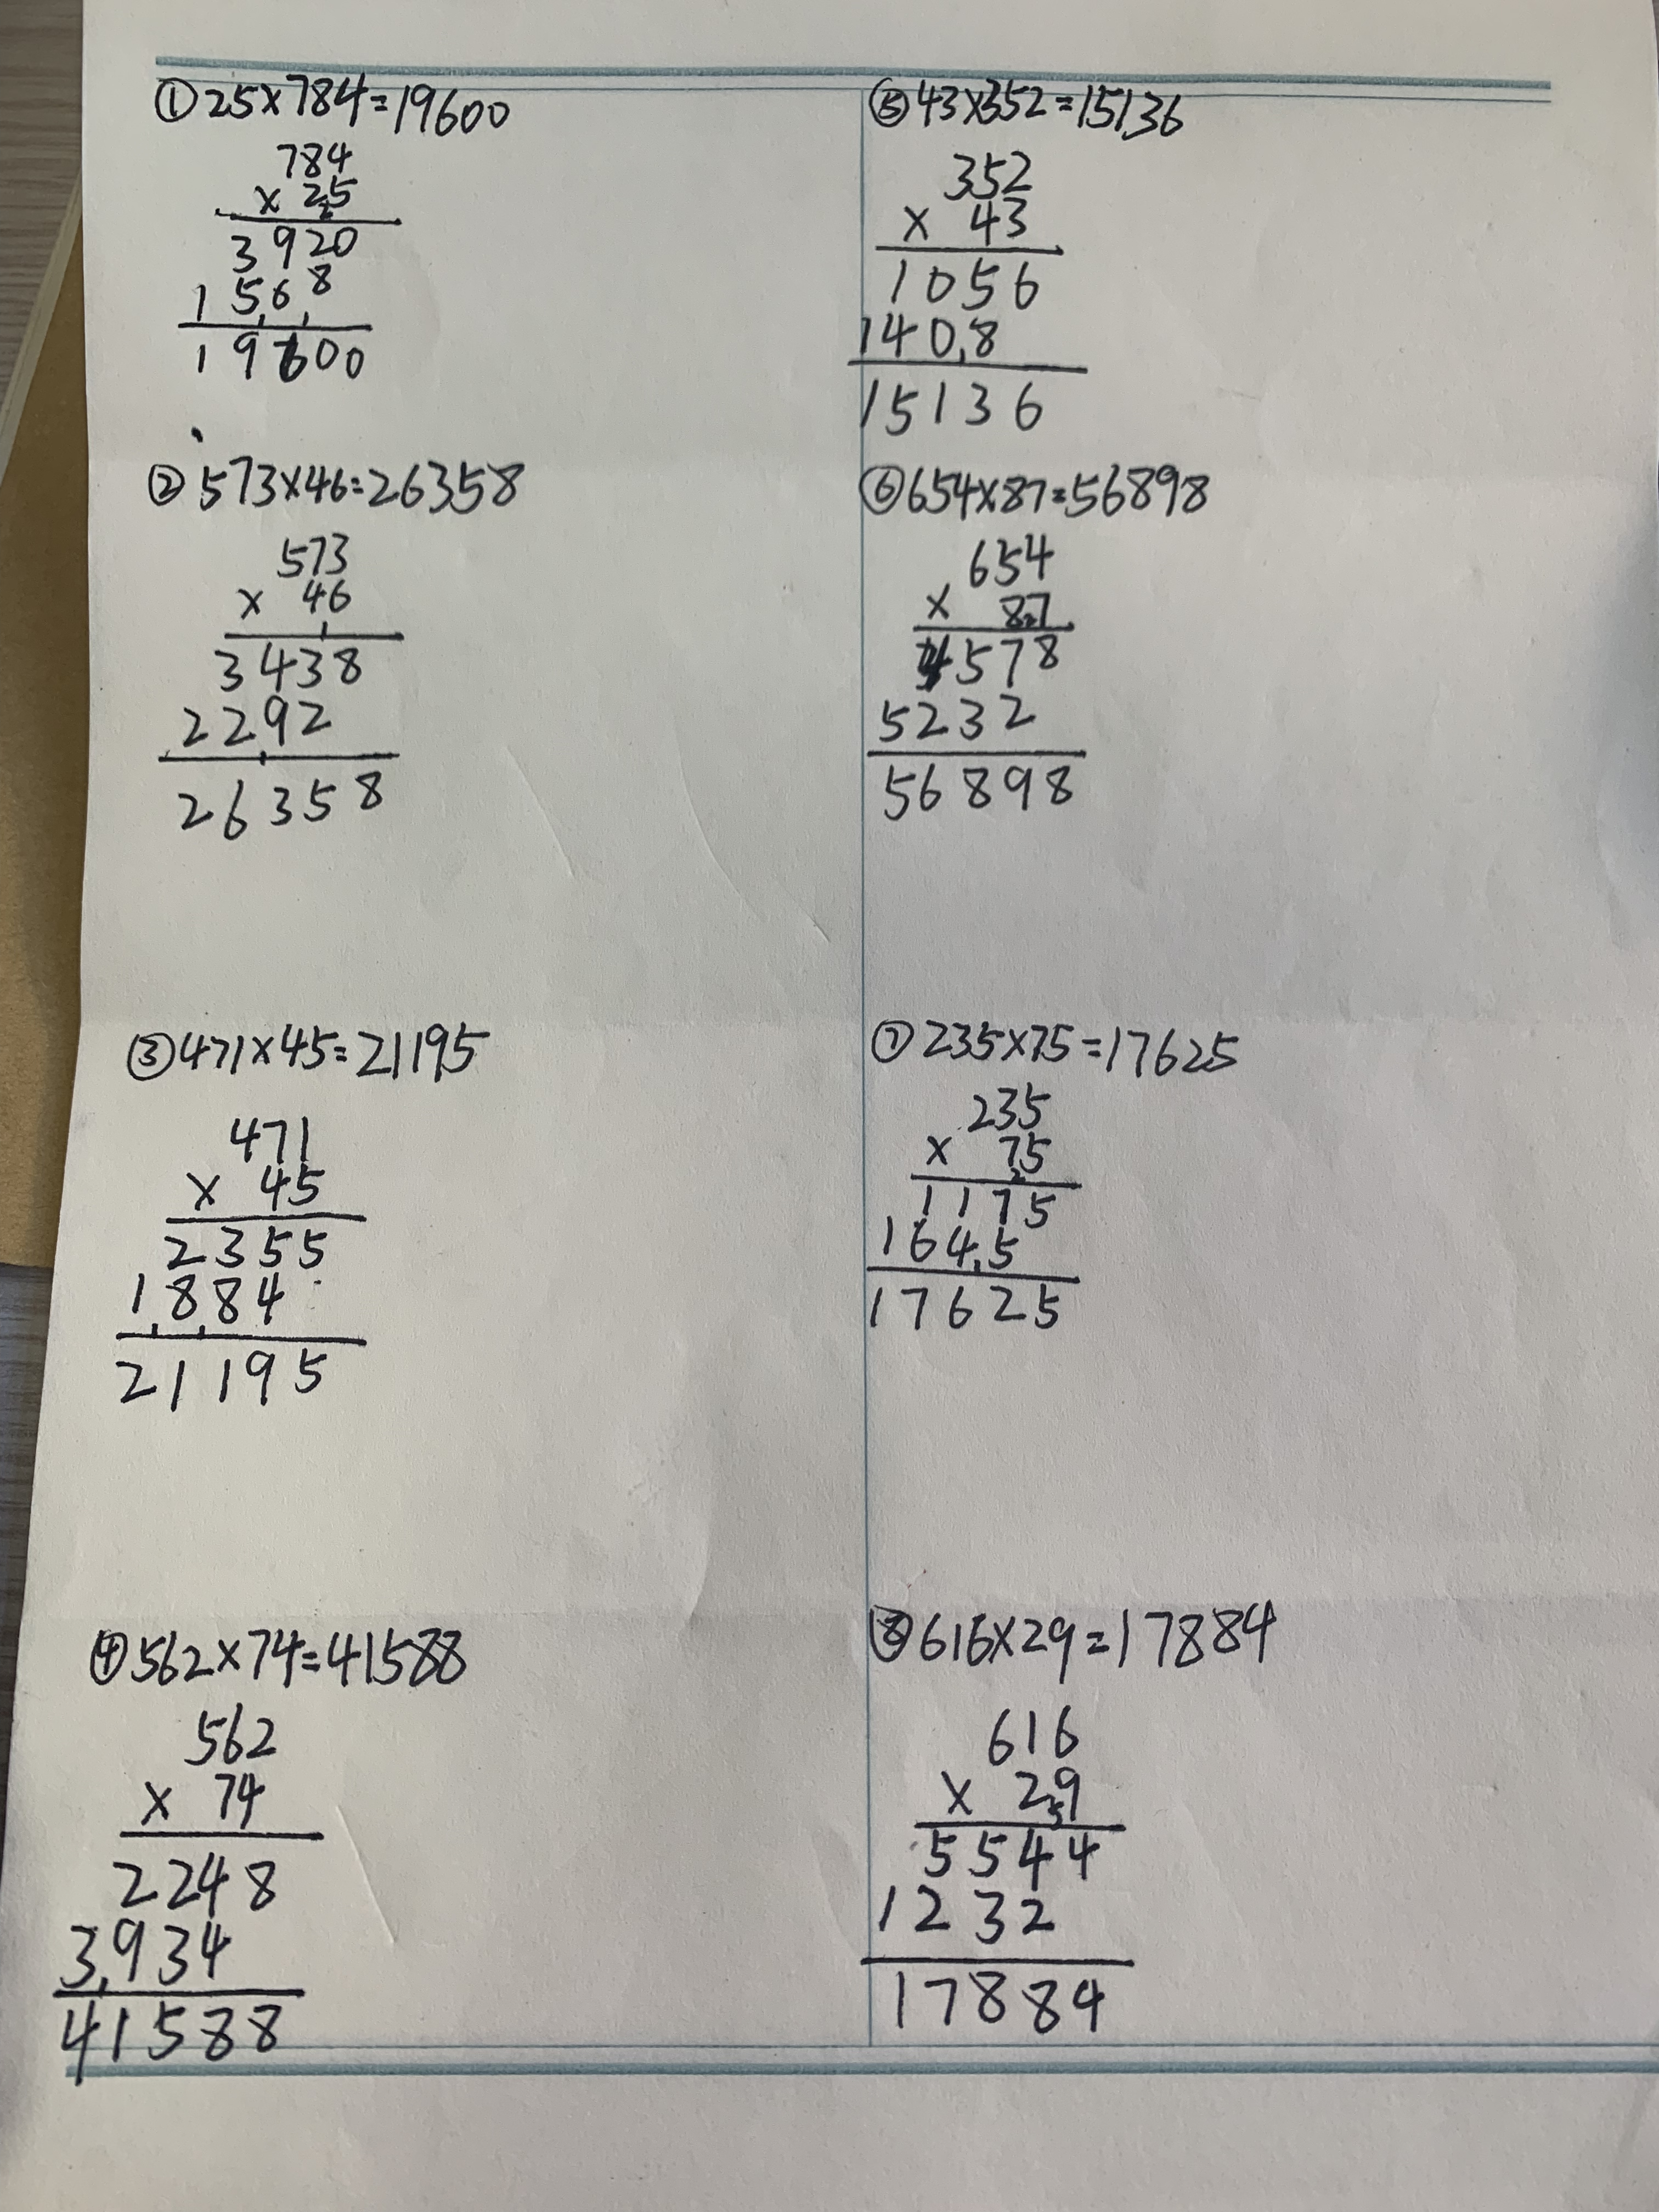 ①25×784=19600
784
×25
2
3920
1568
19600
②573×46=26358
573
×46
3438
2292
26358
③471×45=21195
471
×45
2355
1884
21195
④562×74=41588
562
×74
2248
3934
41588
⑤43×352=15136
352
×43
1056
1408
15136
⑥654×87=56898
654
×87
2
4578
5232
56898
⑦235×75=17625
235
×75
2
1175
1645
17625
⑧616×29=17884
616
×29
5
5544
1232
17884